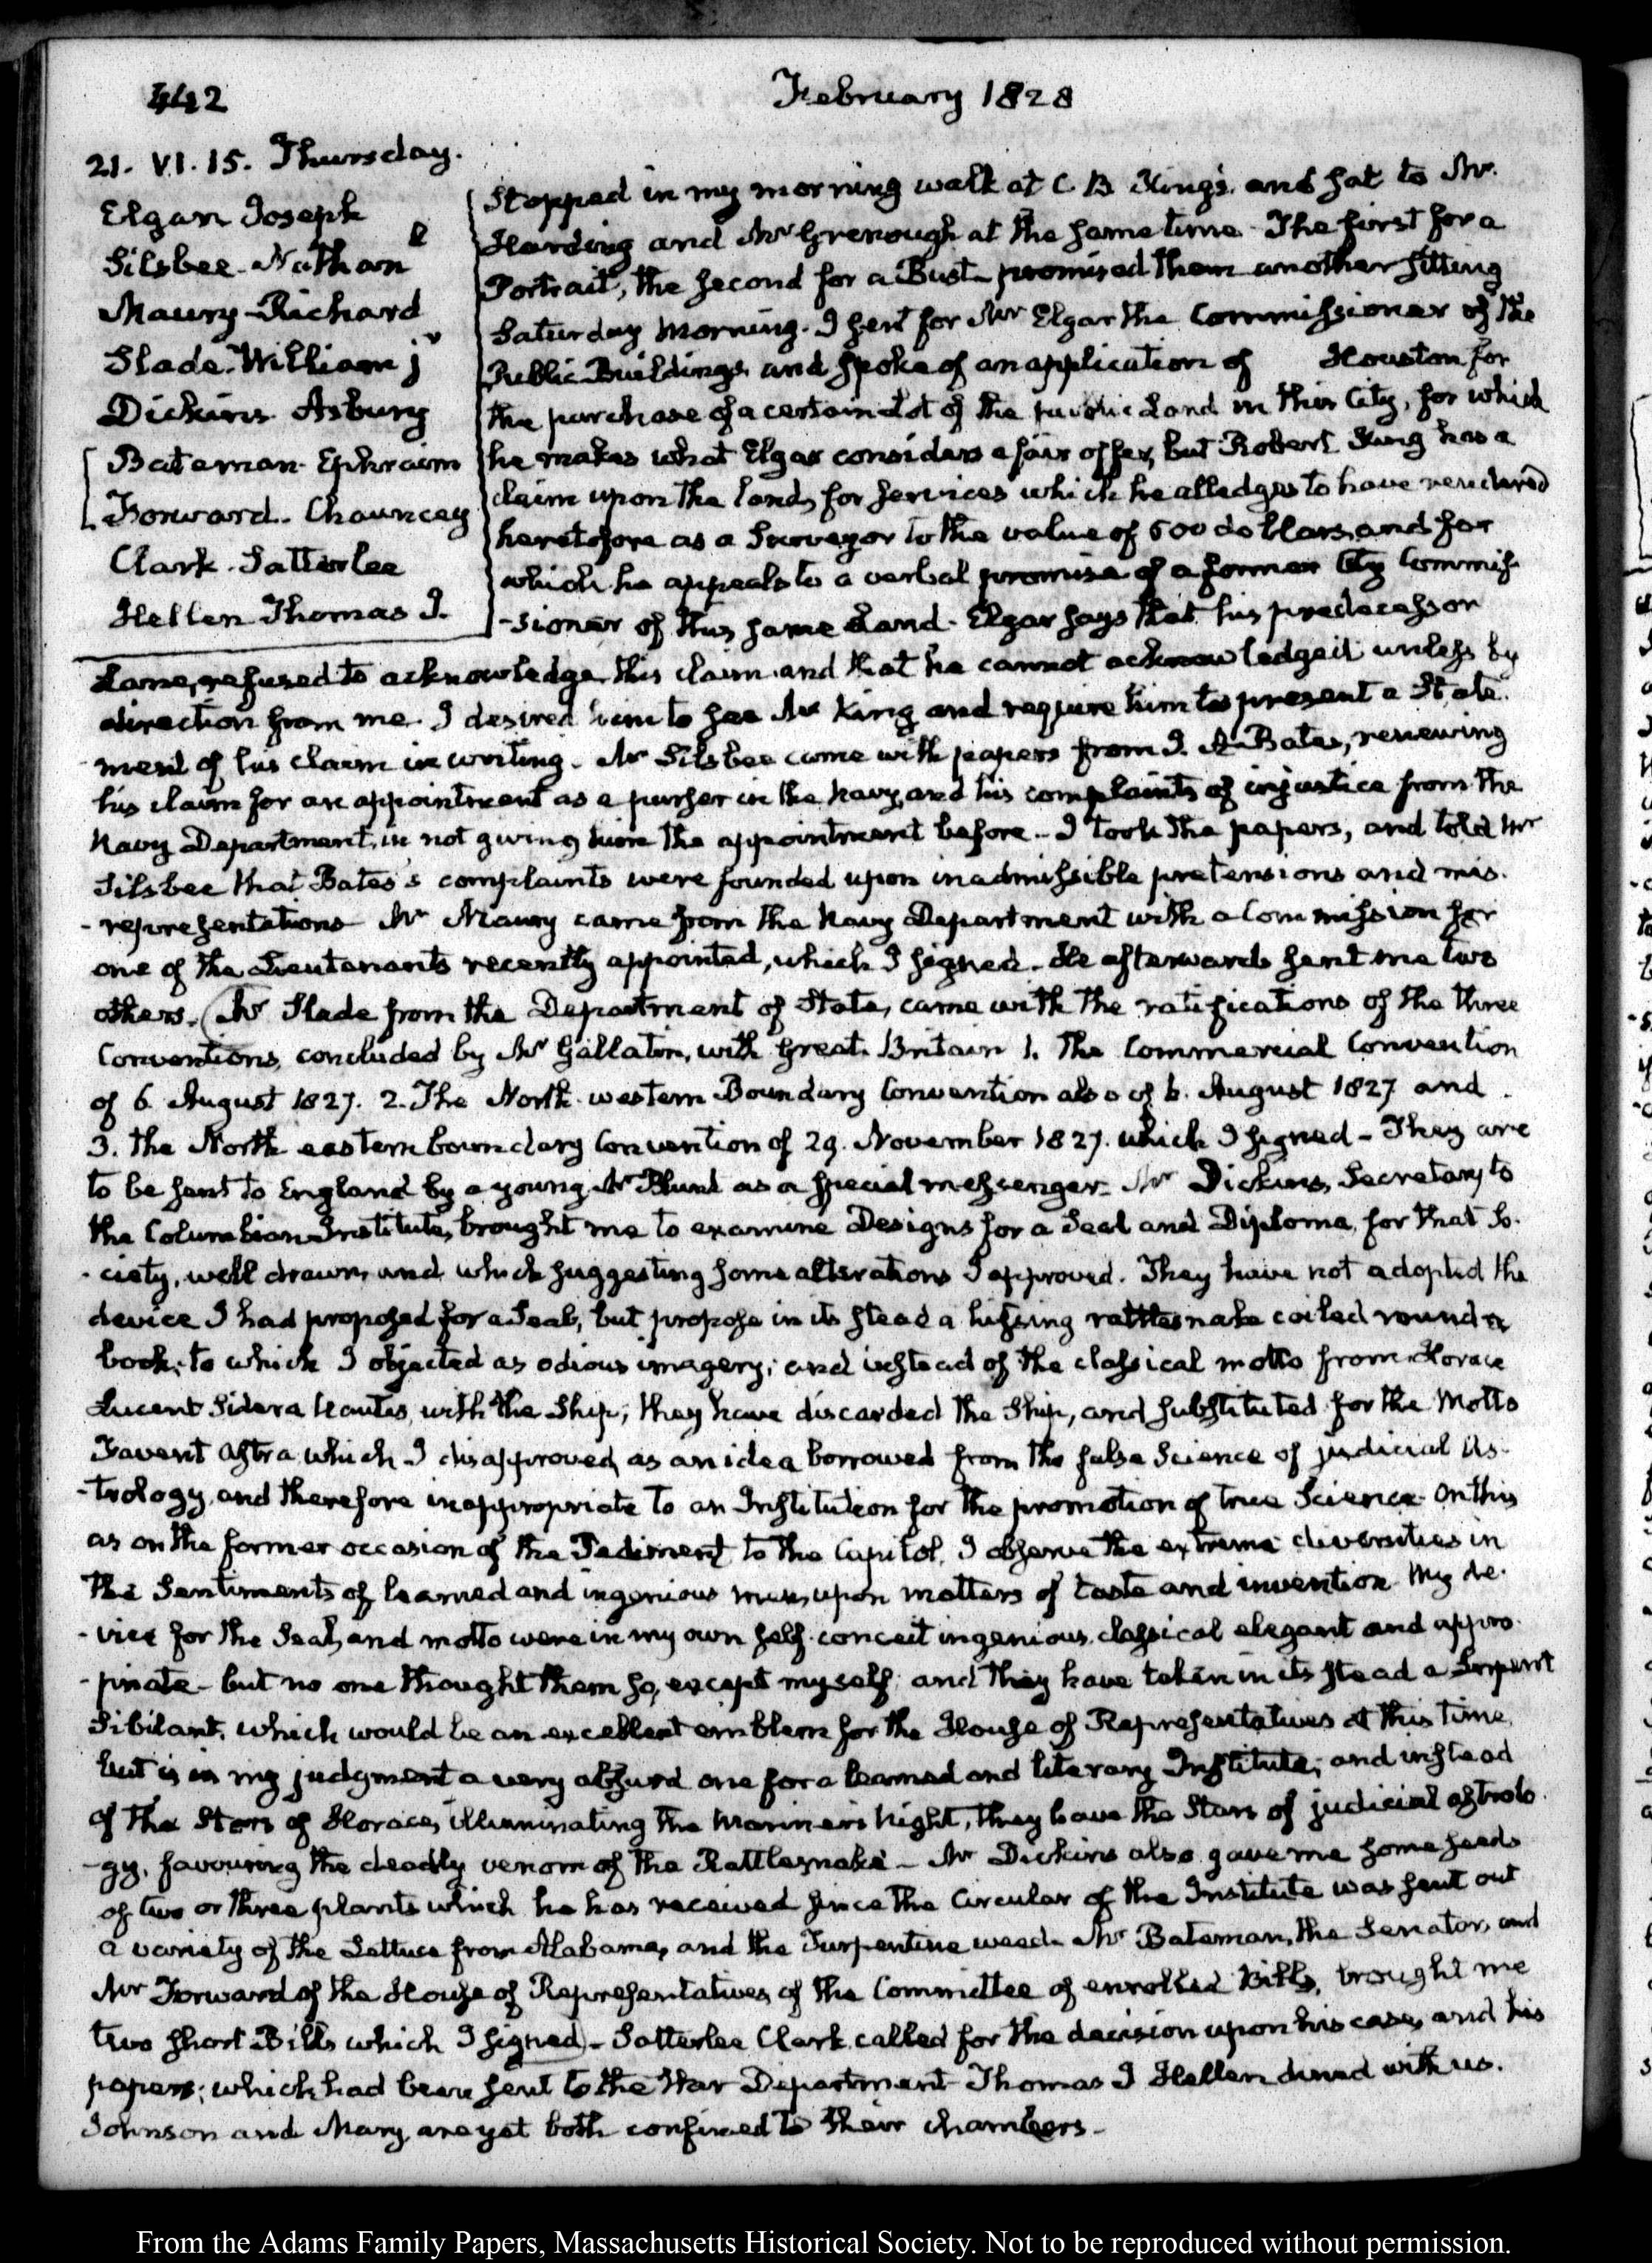 442
February 1828
21. VI. 15. Thursday.
Elgar Joseph
Silsbee. Nathan
Maury Richard
Slade. William jr
Dickins Asbury
Bateman. Ephraim
Forward. Chauncey
Clark. Satterlee
Hellen Thomas J.
Stopped in my morning walk at C B King's. and sat to Mr.
Harding and Mr Grenough at the same time. The first for a
Portrait, the second for a Bust promised them another sitting
Saturday Morning. I sent for Mr Elgar the Commissioner of the
Public Buildings, and spoke of an application of Houston for
the purchase of a certain Lot of the public Land in this City, for which
he makes what Elgar considers a fair offer, but Robert King has a
claim upon the land, for services which he alledges to have rendered
heretofore as a Surveyor to the value of 500 dollars, and for
which he appeals to a verbal promise of a former City Commis
-sioner of this same Land. Elgar says that his predecessor
Lane, refused to acknowledge this claim and that he cannot acknowledge it unless by
direction from me. I desired him to see Mr King and require him to present a State
-ment of his claim in writing. Mr Silsbee came with papers from J. A. Bates, renewing
his claim for an appointment as a purser in the Navy, and his complaints of injustice from the
Navy Department, in not giving him the appointment before. I took the papers, and told Mr
Silsbee that Bates's complaints were founded upon inadmissible pretensions and mis.
-representations Mr Maury came from the Navy Department with a Commission for
one of the Lieutenants recently appointed, which I signed. He afterwards sent me two
others. (Mr Slade from the Department of State, came with the ratifications of the three
Conventions, concluded by Mr Gallatin, with Great Britain 1. The Commercial Convention
of 6. August 1827. 2. The North western Boundary Convention also of 6. August 1827 and
3. the North eastern boundary Convention of 29. November 1827. which I signed - They are
to be sent to England by a young Mr Blunt as a special messenger. Mr Dickins, Secretary to
the Columbian Institute, brought me to examine Designs for a Seal and Diploma, for that So.
-ciety, well drawn, and which suggesting some alterations I approved. They have not adopted the
device I had proposed for a Seal, but propose in its stead a hissing rattlesnake coiled round a
book; to which I objected as odious imagery; and instead of the classical motto from Horace
Lucent Sidera Nautis, with the Ship; they have discarded the Ship, and substituted for the Motto
Favent Astra which I disapproved, as an idea borrowed from the false Science of judicial As
-trology, and therefore inappropriate to an Institution for the promotion of true Science. On this
as on the former occasion of the Pediment to the Capitol, I observe the extreme diversities in
the Sentiments of learned and ingenious men, upon matters of taste and invention. My de.
-vice for the Seal, and motto were in my own self-conceit ingenious, classical elegant and appro.
-priate - but no one thought them so, except myself; and they have taken in its stead a Serpent
Sibilant, which would be an excellent emblem for the House of Representatives at this time,
but is in my judgment a very absurd one for a learned and literary Institute; and instead
of the Stars of Horace, illuminating the Mariner's Night, they have the Stars of judicial astrolo.
-gy, favouring the deadly venom of the Rattlesnake - Mr Dickins also gave me some seeds
of two or three plants which he has received since the Circular of the Institute was sent out
a variety of the Lettuce from Alabama, and the Turpentine weed. Mr Bateman, the Senator, and
Mr Forward of the House of Representatives, of the Committee of enrolled Bills, brought me
two short Bills which I signed) - Satterlee Clark called for the decision upon his case, and his
papers; which had been sent to the War Department Thomas J Hellen dined with us.
Johnson and Mary, are yet both confined to their chambers -
From the Adams Family Papers, Massachusetts Historical Society. Not to be reproduced without permission.